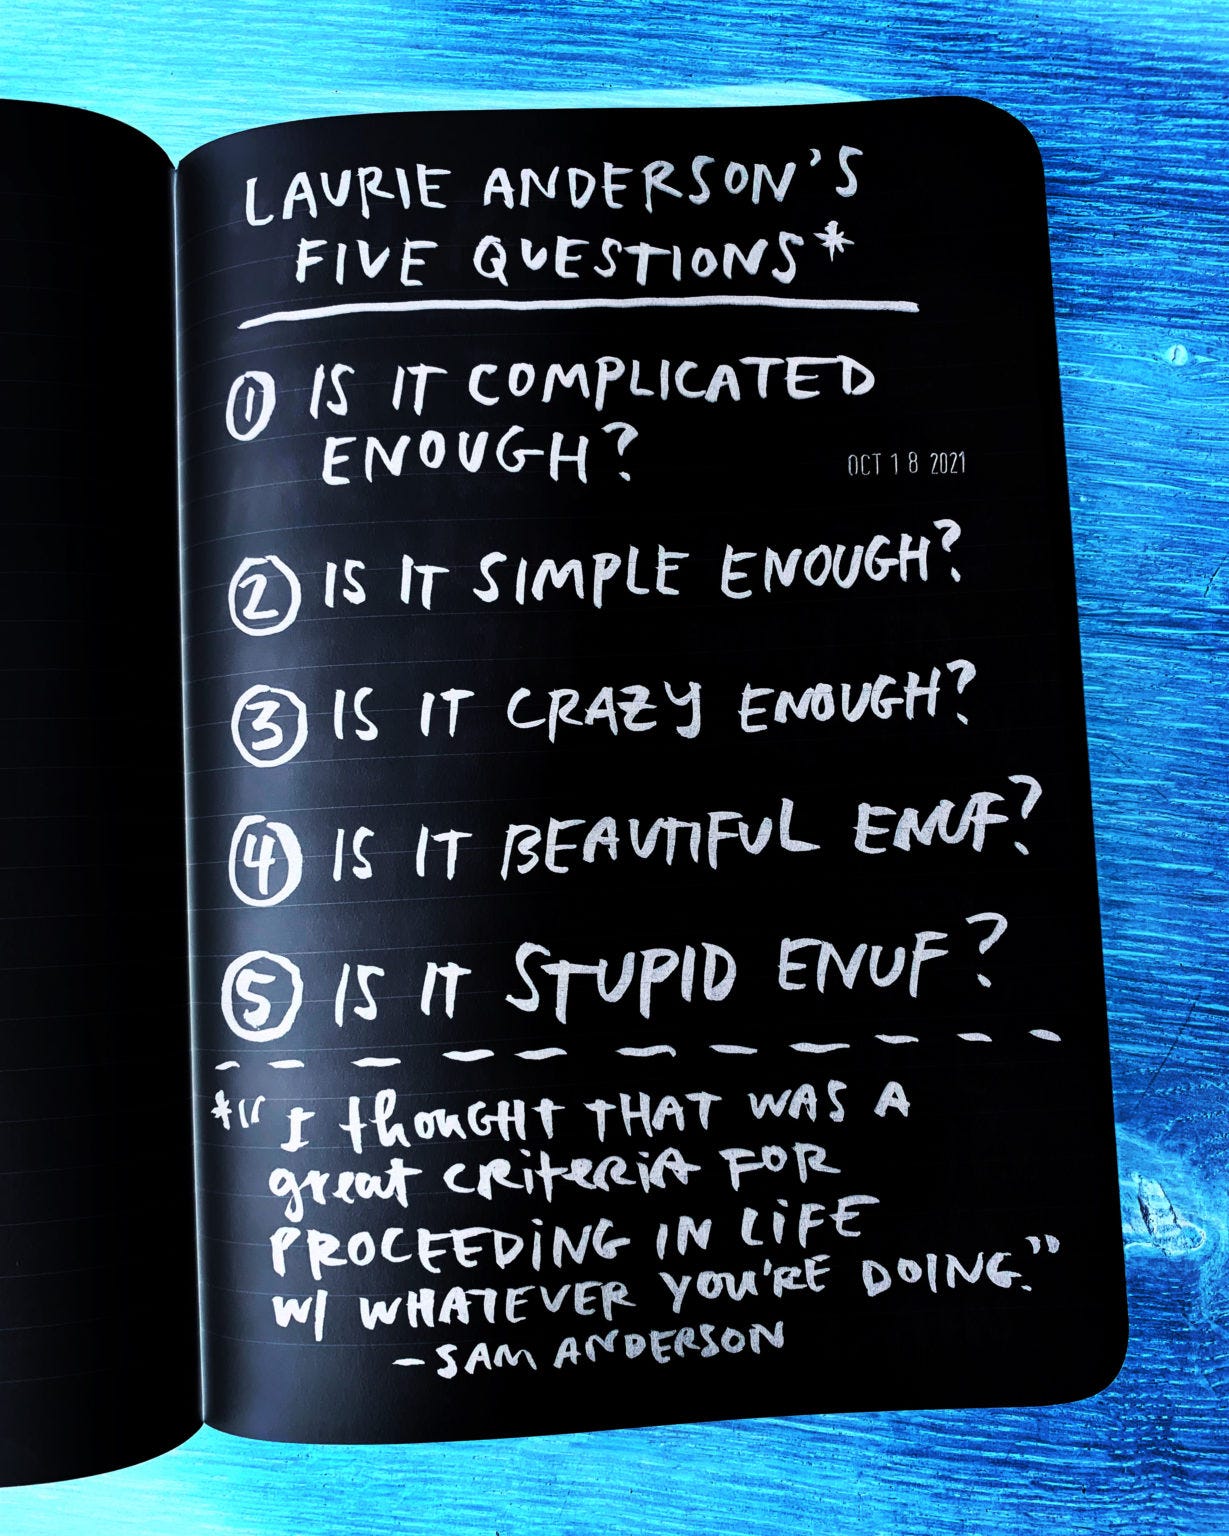 LAURIE ANDERSON'S
FIVE QUESTIONS*
① IS IT COMPLICATED
ENOUGH?
OCT 18 2021
② IS IT SIMPLE ENOUGH?
③ IS IT CRAZY ENOUGH?
④ IS IT BEAUTIFUL ENUF?
⑤ IS IT STUPID ENUF?
*"I thOUGHT THAT WAS A
great CRiteRiA FOR
PROCEEDiNG IN LiFE
W/ WHATEVER YOU'RE DOING."
-SAM ANDERSON